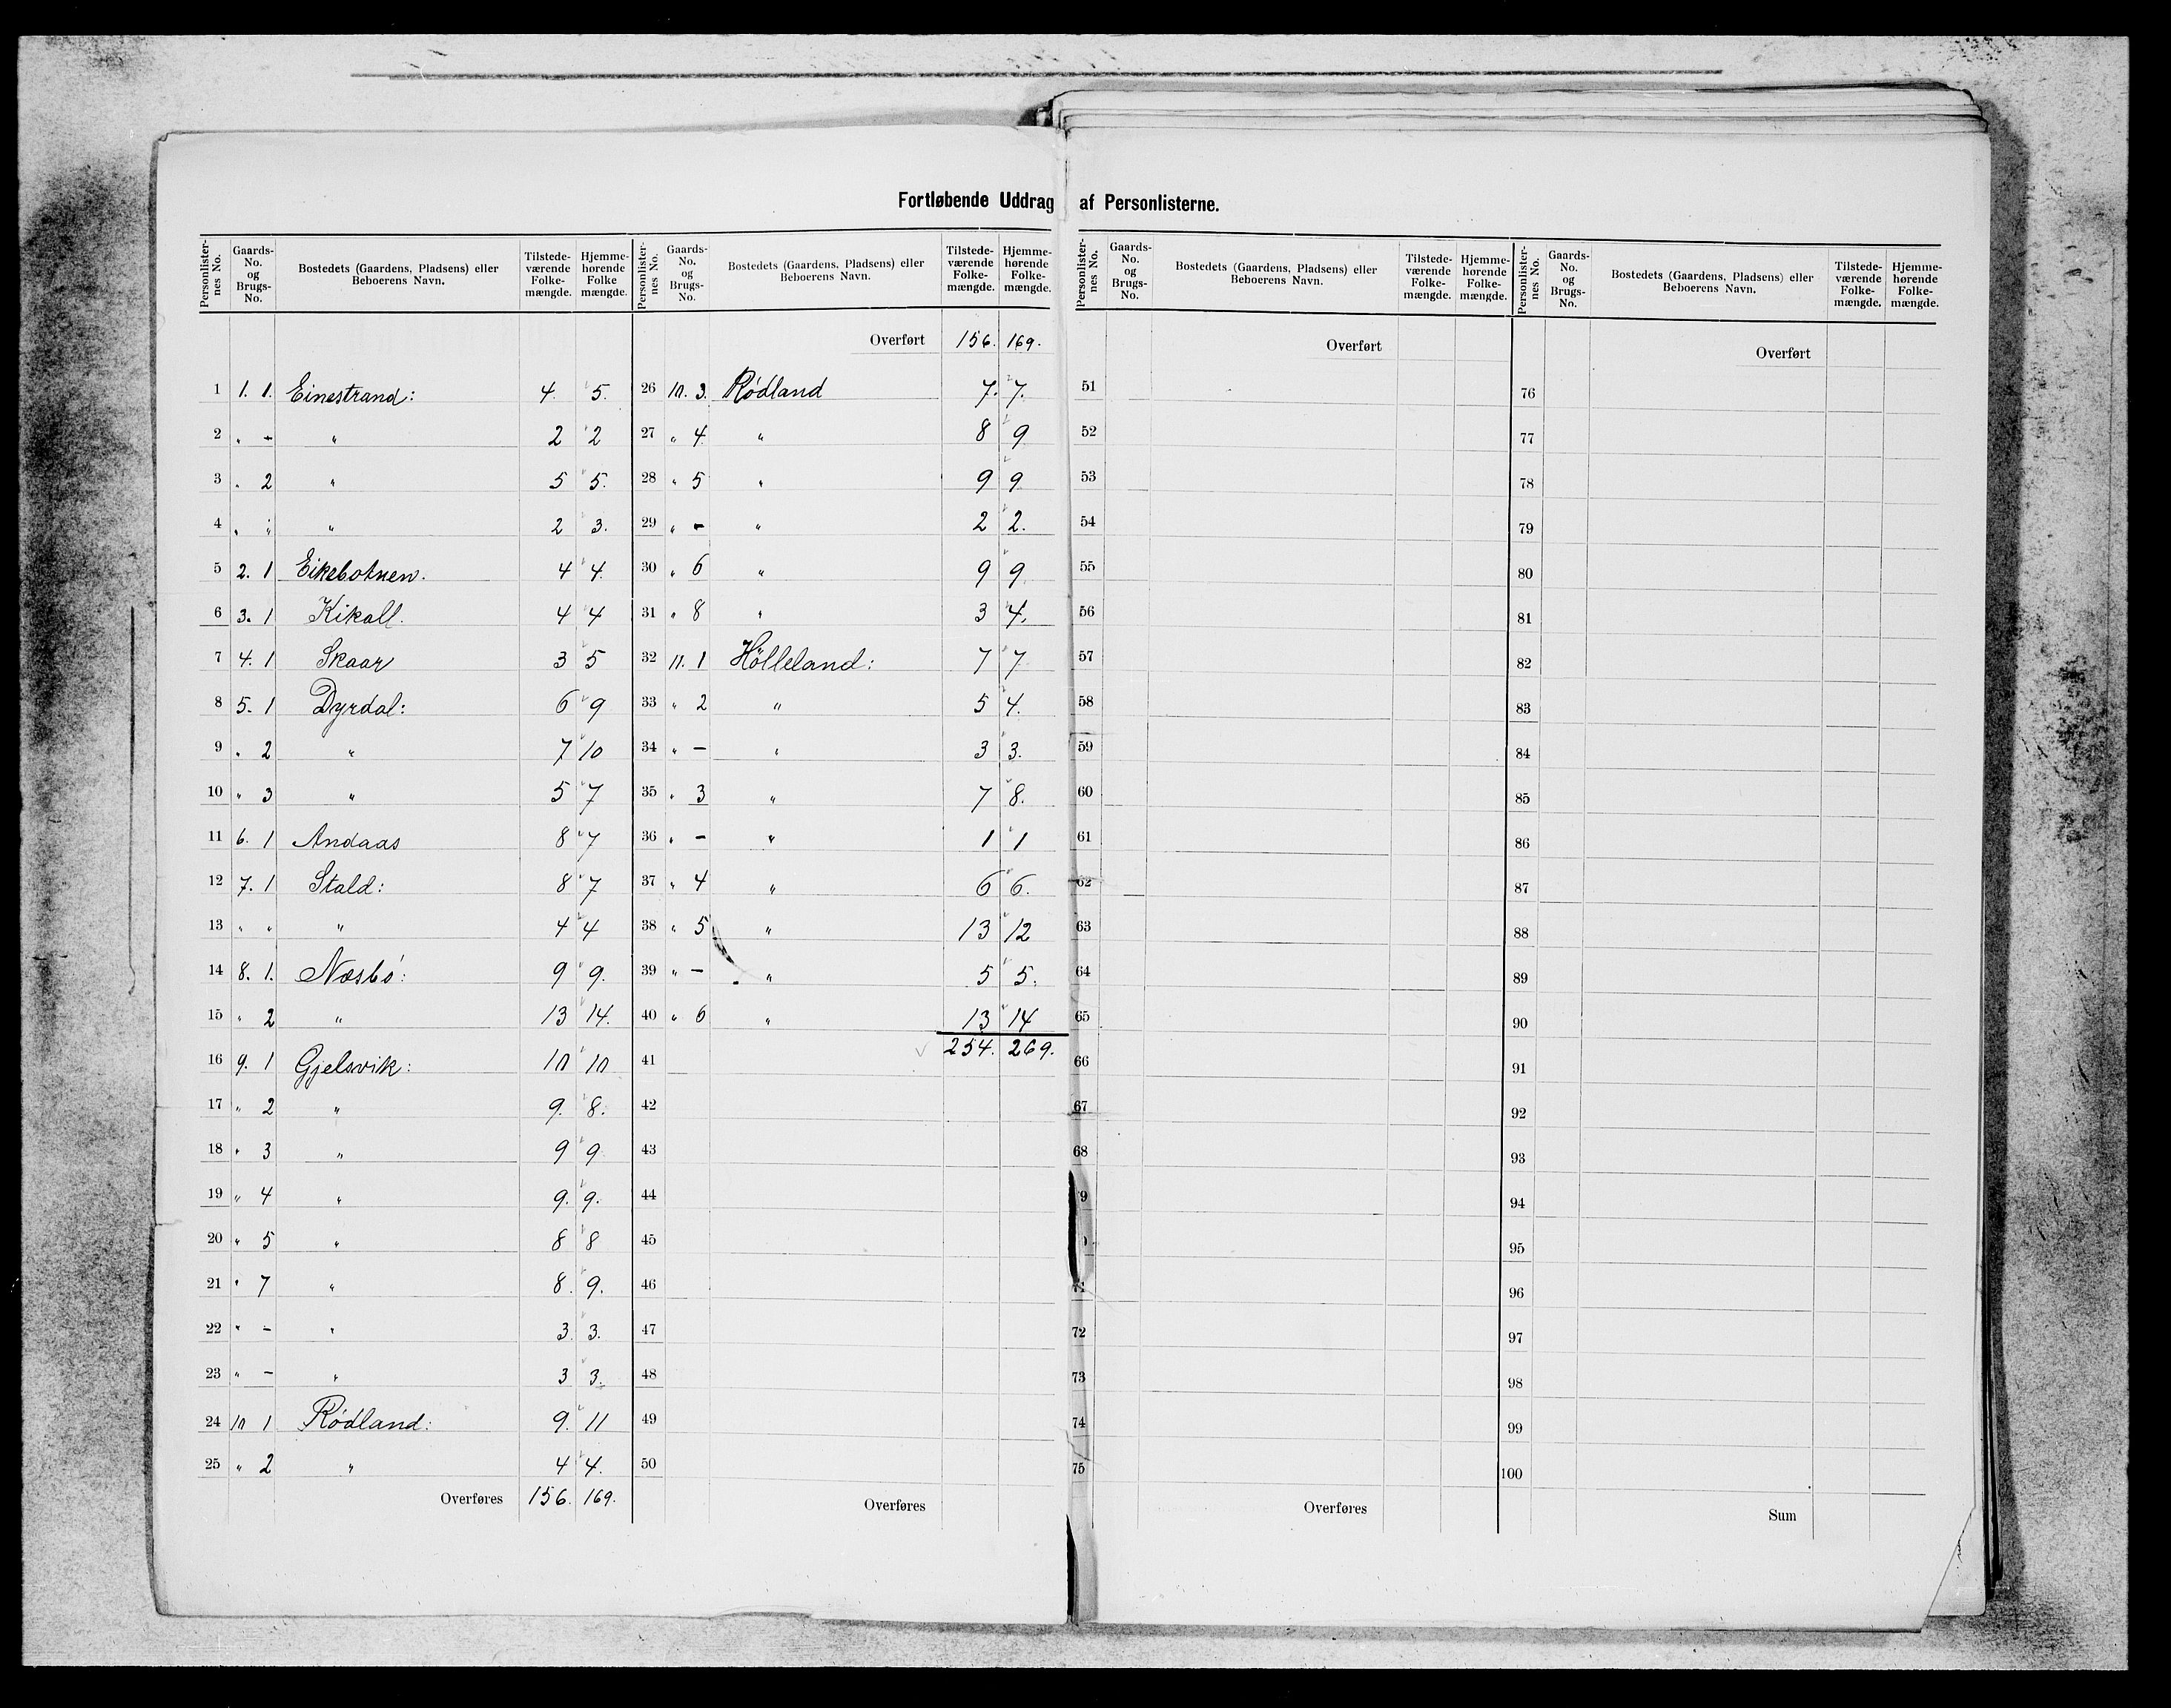 Fortløbende Uddrag af Personlisterne.
Personlister-nes No. Gaards-No. og Brugs-No. Bostedets (Gaardens, Pladsens) eller Beboerens Navn. Tilstede-værende Folke-mængde. Hjemme-hørende Folke mængde.
1 1. 1. Einestrand: 4. 5.
2 „ - „ 2 2
3 „ 2 „ 5 5.
4 „ „ „ 2 3.
5 2. 1 Eikebotnen. 4 4.
6 3. 1 Kikall. 4 4
7 4. 1 Skaar 3 5
8 5. 1 Dyrdal: 6 9
9 „ 2 „ 7 10
10 „ 3 „ 5 7
11 6. 1 Andaas 8 7
12 7. 1 Stald: 8 7
13 „ „ „ 4 4
14 8. 1. Næsbø: 9 9.
15 „ 2 „ 13 14.
16 9. 1 Gjelsvik: 10 10
17 „ 2 „ 9. 8.
18 „ 3 „ 9 9
19 „ 4 „ 9. 9.
20 „ 5 „ 8 8
21 „ 7 „ 8. 9.
22 „ - „ 3. 3.
23 „ - „ 3 3.
24 10 1 Rødland: 9. 11
25 „ 2 „ 4 4.
Overføres 156. 169.
Personlister-nes No. Gaards-No. og Brugs-No. Bostedets (Gaardens, Pladsens) eller Beboerens Navn. Tilstede-værende Folke-mængde. Hjemme-hørende Folke-mængde.
Overført 156. 169.
26 10. 3. Rødland 7. 7.
27 „ 4 „ 8 9
28 „ 5 „ 9 9
29 „ - „ 2 2.
30 „ 6 „ 9 9
31 „ 8 „ 3 4.
32 11. 1 Hølleland: 7 7
33 „ 2 „ 5 4.
34 „ - „ 3 3.
35 „ 3 „ 7 8.
36 „ - „ 1 1
37 „ 4 „ 6 6.
38 „ 5 „ 13 12
39 „ - „ 5 5.
40 „ 6 „ 13 14
41 254. 269.
42
43
44
45
46
47
48
49
50
Overføres
Personlister-nes No. Gaards-No. og Brugs-No. Bostedets (Gaardens, Pladsens) eller Beboerens Navn. Tilstede-værende Folke-mængde. Hjemme-hørende Folke-mængde.
Overført
51
52
53
54
55
56
57
58
59
60
61
62
63
64
65
66
67
68
9
71
72
73
74
75
Overføres
Personlister-nes No. Gaards-No. og Brugs-No. Bostedets (Gaardens, Pladsens) eller Beboerens Navn. Tilstede-værende Folke-mængde. Hjemme-hørende Folke-mængde.
Overført
76
77
78
79
80
81
82
83
84
85
86
87
88
89
90
91
92
93
94
95
96
97
98
99
100
Sum